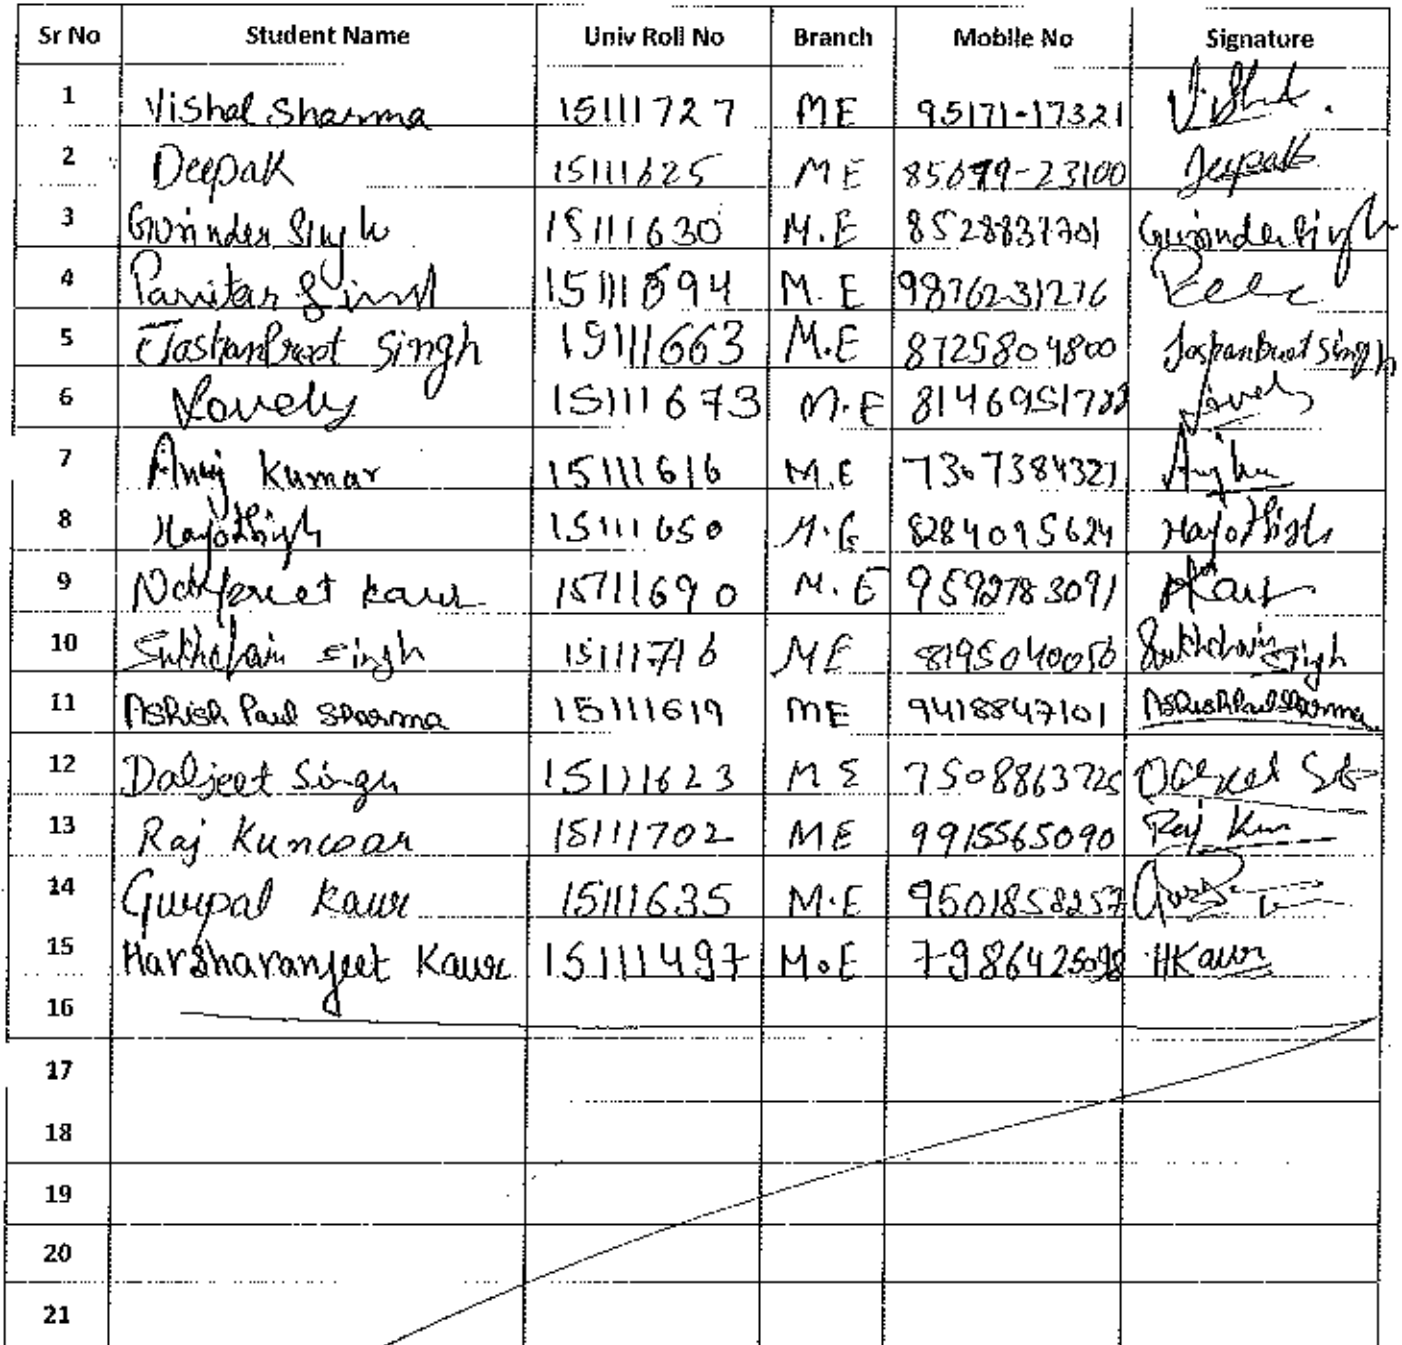 Sr No Student Name Univ Roll No Branch Mobile No Signature
1 Vishal Sharma 15111727 ME 95171-17321
2 Deepak 15111625 ME 85699-23100 Deepak
3 Gurinder Singh 15111630 M.E 8528837701 Gurinder Singh
4 Pavitar Singh 15111694 M.E 9876231276
5 Jashanpreet Singh 15111663 M.E 8725804800 Jashanpreet Singh
6 Lovely 15111673 M.E Lovely
7 Anuj Kumar 15111616 M.E 7307384321
8 15111650 8284095624
9 Navpreet kaur 15111690 M.E 9592783091 Kaur
10 Sukhchain Singh 15111716 ME 8195040056 Sukhchain Singh
11 Ashish Paul Sharma 15111619 ME 9418847101 Ashish Paul Sharma
12 Daljeet Singh 15111623 ME 7508863725
13 Raj Kumar 15111702 ME 9915565090 Raj Kum
14 Gurpal Kaur 15111635 M.E 9501858257
15 Harsharanjeet Kaur 15111497 M.E 7986425098 HKaur
16
17
18
19
20
21